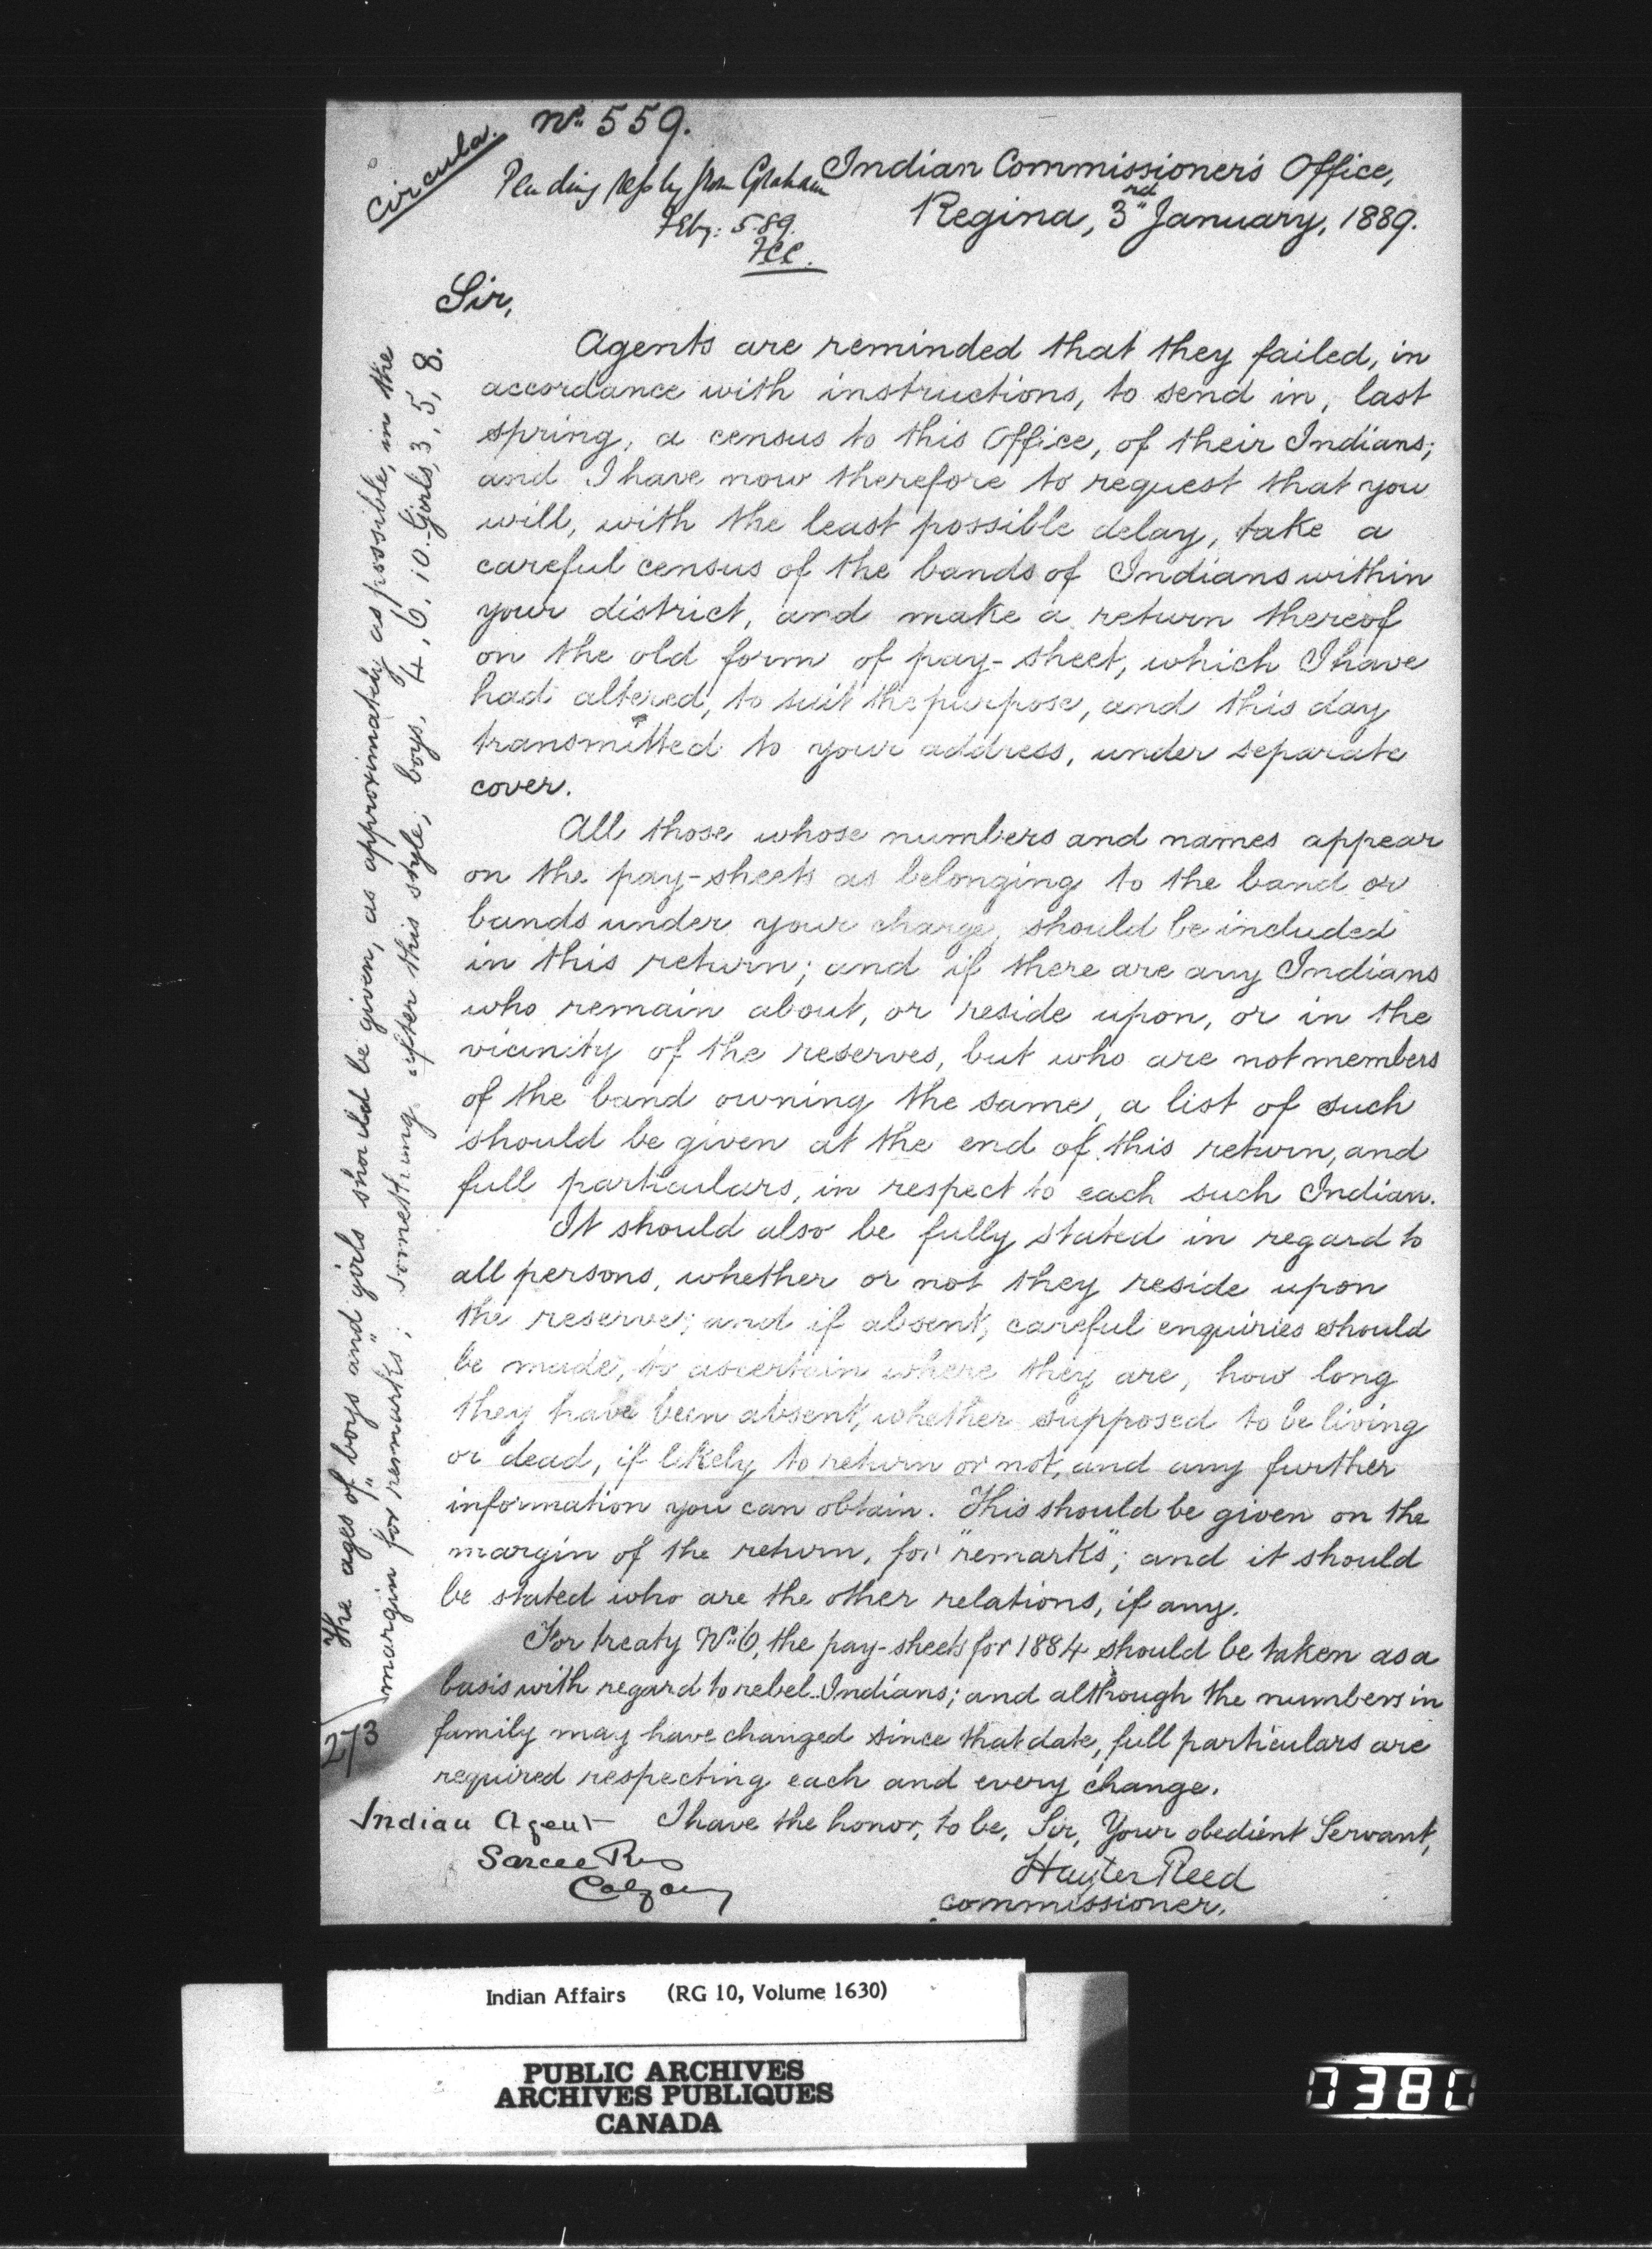 Circular.
No. 559.
Pending reply from Graham
Feby: 5-89.
Indian Commissioner's Office,
Regina, 3rd January, 1889.
Sir,
Agents are reminded that they failed, in
accordance with instructions, to send in, last
spring, a census to this Office, of their Indians;
and I have now therefore to request that you
will, with the least possible delay, take a
careful census of the bands of Indians within
your district, and make a return thereof
on the old form of pay-sheet, which I have
had altered, to suit the purpose, and this day
transmitted to your address, under separate
cover.
All those whose numbers and names appear
on the pay-sheets as belonging to the band or
bands under your charge, should be included
in this return; and if there are any Indians
who remain about, or reside upon, or in the
vicinity of the reserves, but who are not members
of the band owning the same, a list of such
should be given at the end of this return, and
full particulars, in respect to each such Indian.
It should also be fully stated in regard to
all persons, whether or not they reside upon
the reserve; and if absent, careful enquiries should
be made, to ascertain where they are, how long
they have been absent, whether supposed to be living
or dead, if likely to return or not, and any further
information you can obtain. This should be given on the
margin of the return, for "remarks"; and it should
be stated who are the other relations, if any.
For treaty No. 6, the pay-sheets for 1884 should be taken as a
basis with regard to rebel Indians; and although the numbers in
family may have changed since that date, full particulars are
required respecting each and every change.
I have the honor, to be, Sir, Your obedient Servant,
Hayter Reed
Commissioner.
Indian Agent
Sarcee Res
Calgary
The ages of "boys" and "girls" should be given, as approximately as possible, in the
margin for remarks; something after this style; boys, 4, 6, 10. Girls, 3, 5, 8.
273
Indian Affairs (RG 10, Volume 1630)
PUBLIC ARCHIVES
ARCHIVES PUBLIQUES
CANADA
0380